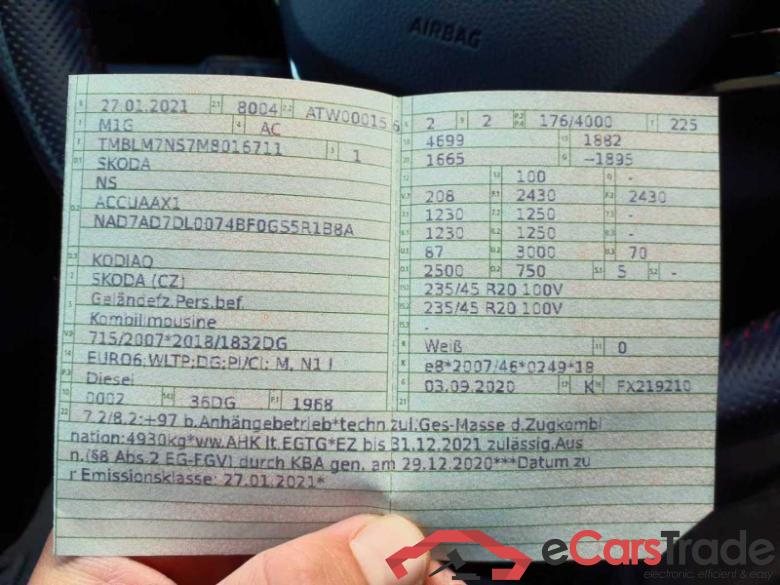 AIRBAG
27.01.2021 8004 ATW00015 6
M1G AC
TMBLM7NS7M8016711 1
SKODA
NS
ACCUAAX1
NAD7AD7DL0074BF0GS5R1B8A
KODIAQ
SKODA (CZ)
Geländefz.Pers.bef.
Kombilimousine
715/2007*2018/1832DG
EURO6;WLTP;DG;PI/CI; M, N1 I
Diesel
0002 36DG P.1 1968
2 9 2 P.2 P.4 176/4000 T 225
4699 1882
1665 G --1895
100 -
208 F.1 2430 F.2 2430
1230 1250 -
1230 1250 -
87 3000 70
2500 750 S.1 5 S.2 -
235/45 R20 100V
235/45 R20 100V
-
Weiß 11 0
e8*2007/46*0249*18
03.09.2020 K FX219210
22 7.2/8.2:+97 b.Anhängebetrieb*techn zul.Ges-Masse d.Zugkombi
nation:4930kg*ww.AHK lt.EGTG*EZ bis 31.12.2021 zulässig.Aus
n.(§8 Abs.2 EG-FGV) durch KBA gen. am 29.12.2020***Datum zu
r Emissionsklasse: 27.01.2021*
eCarsTrade
electronic, efficient & easy